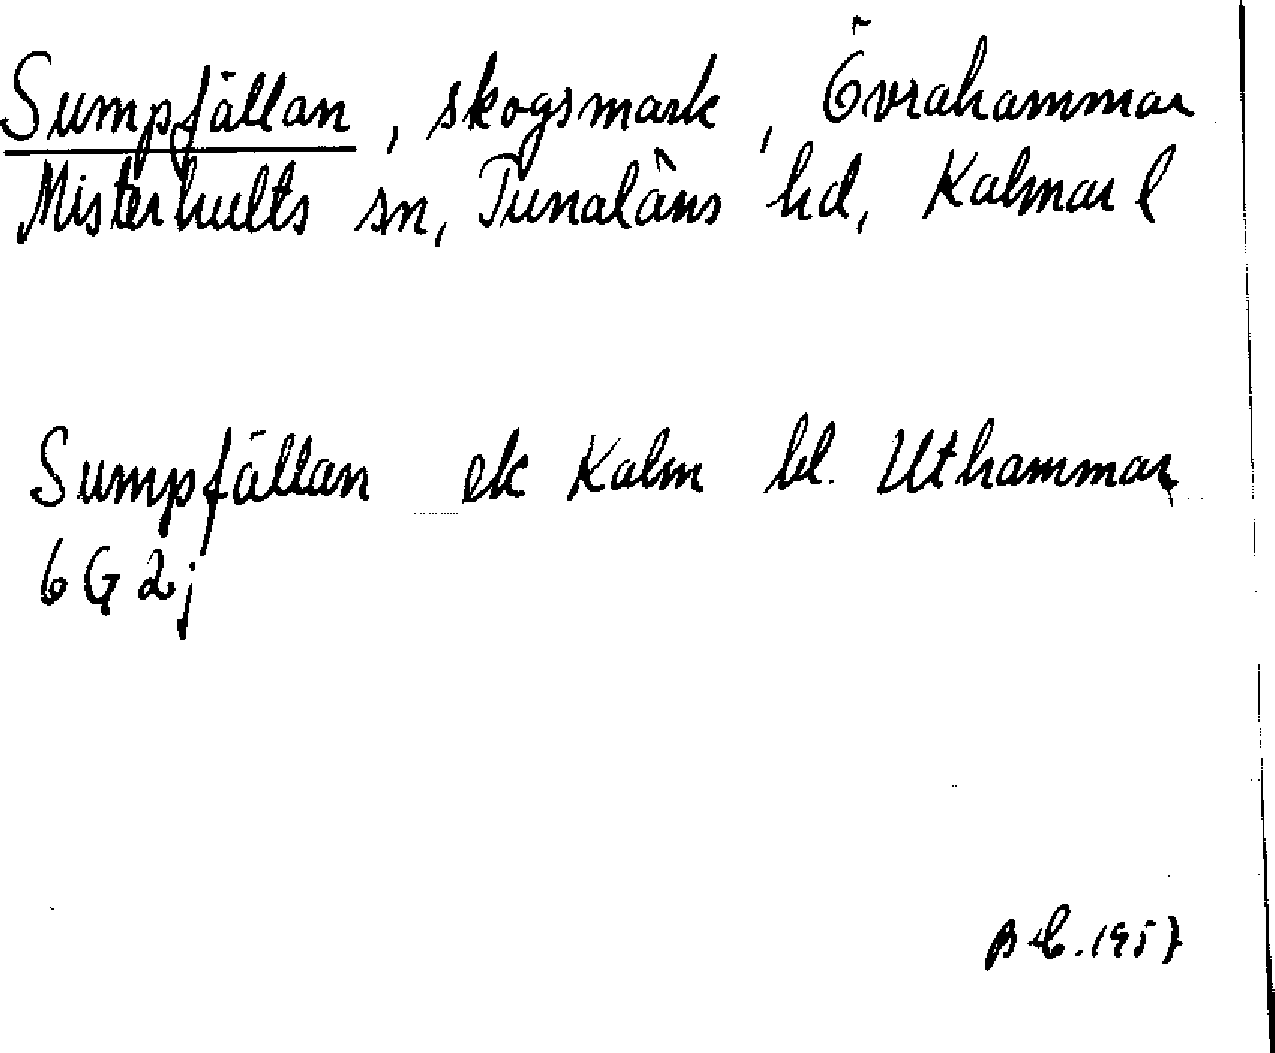 Sumpfällan, skogsmark, Övrahammar
Misterhults sn, Tunaläns hd, Kalmar l
Sumpfällan ek Kalm bl. Uthammar
6 G 2j
1957